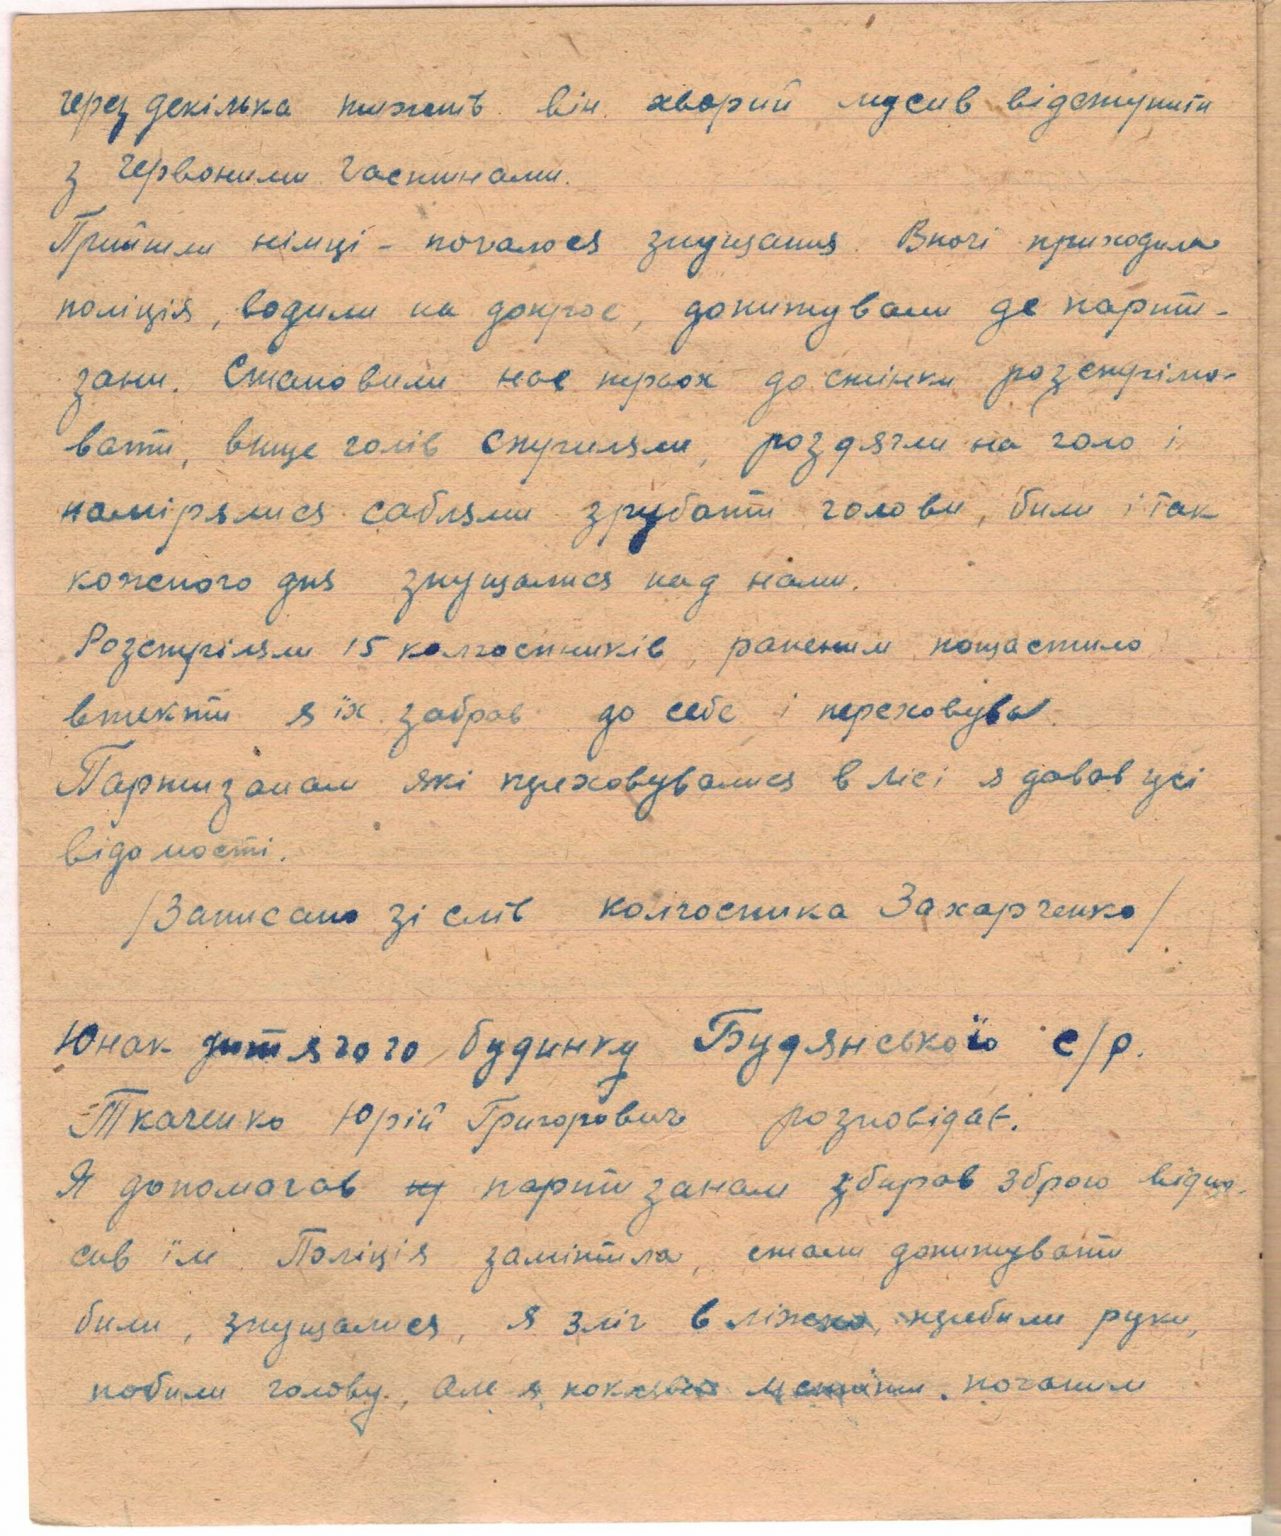 через декілька тижнів він хворий мусив відступити
з червоними частинами.
Прийшли німці - почалося знущання. Вночі приходила
поліція, водили на допрос, допитували де парти-
зани. Становили нас трьох до стінки розстріля-
вати, вище голів стріляли, роздягли на голо і
намірялися саблями зрубати голови, били і так
кожного дня знущалися над нами.
Розстріляли 15 колгоспників, раненим пощастило
втекти я їх забрав до себе і переховував.
Партизанам які переховувалися в лісі я давав усі
відомості.
/Записано зі слів колгоспника Захарченко/
Юнак дитячого будинку Будянської с/р.
Ткаченко Юрій Григорович розповідає.
Я допомагав партизанам збирав зброю відно-
сив їм. Поліція замітила, стали допитувати
били, знущалися, я зліг в ліжко, перебили руки,
побили голову, але я поклявся мстити поганим